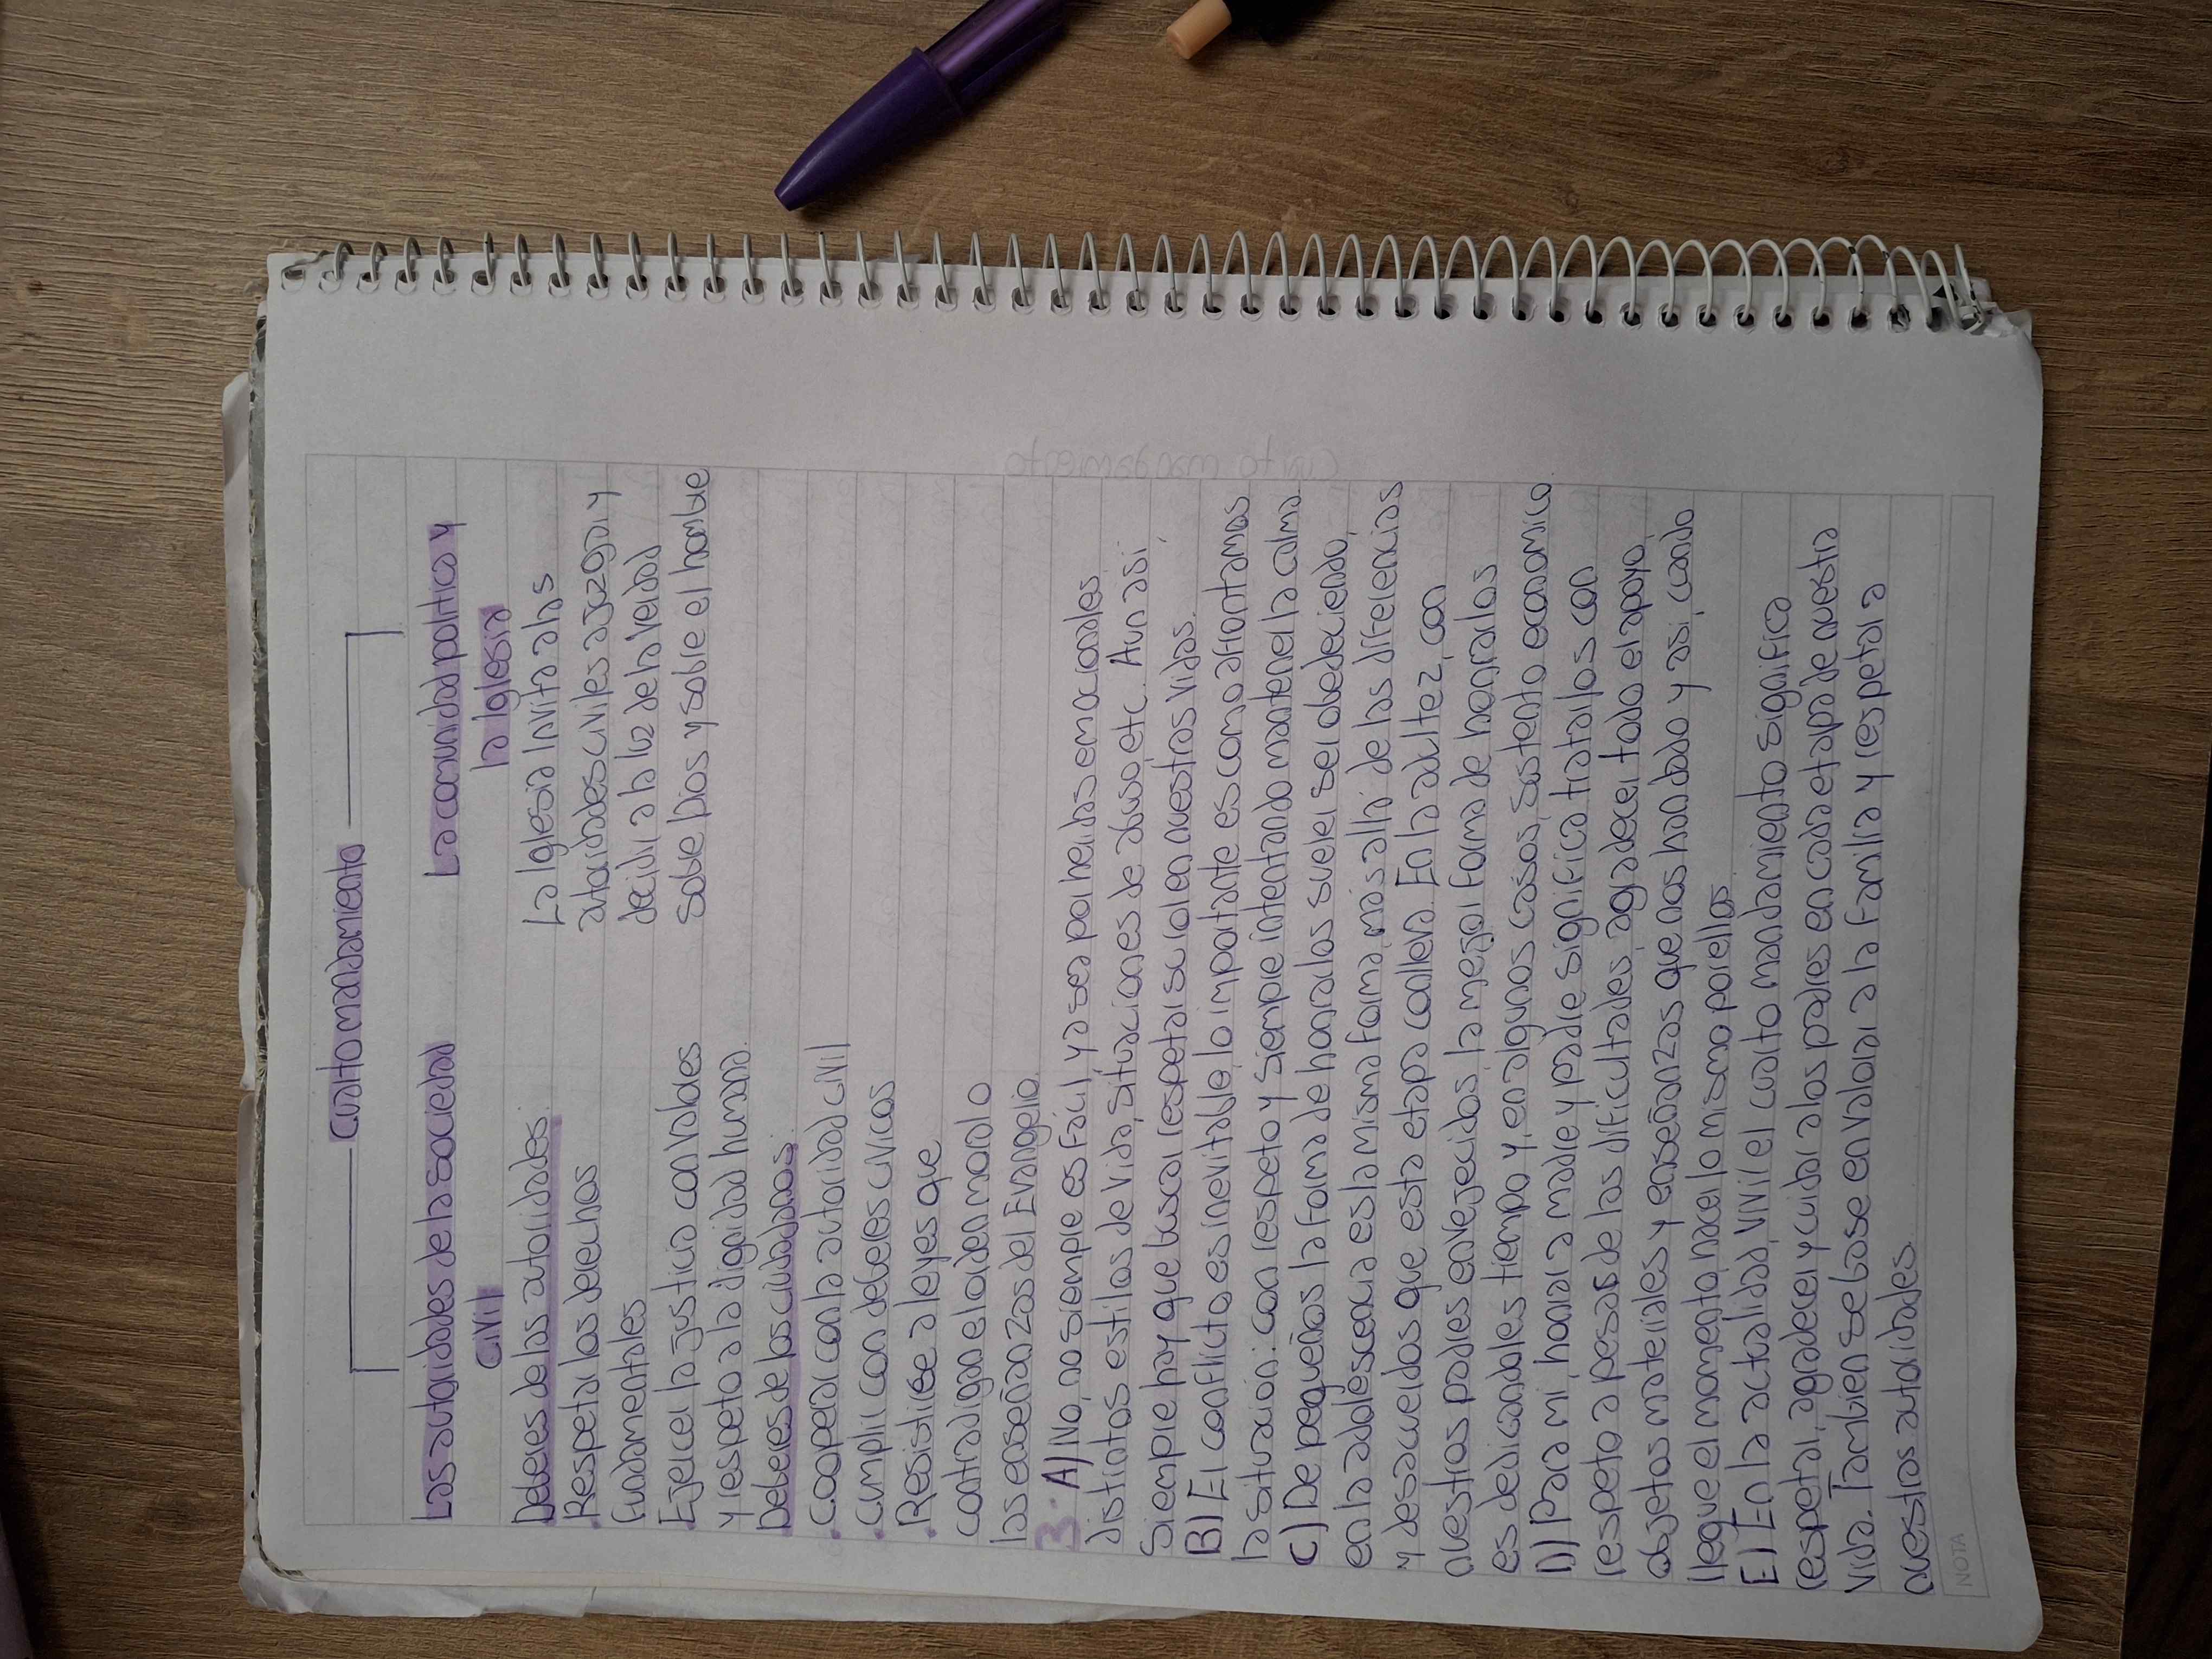 Cuarto mandamiento
Las autoridades de la sociedad
civil
Deberes de las autoridades:
. Respetar los derechos
fundamentales
. Ejercer la justicia con valores
y respeto a la dignidad humana.
Deberes de los ciudadanos:
. Cooperar con la autoridad civil
. Cumplir con deberes cívicos
. Resistirse a leyes que
contradigan el orden moral o
las enseñanzas del Evangelio.
La comunidad política y
la Iglesia
La Iglesia invita a las
autoridades civiles a juzgar y
decidir a la luz de la verdad
sobre Dios y sobre el hombre
3. A) No, no siempre es fácil, ya sea por heridas emocionales,
distintos estilos de vida, situaciones de abuso, etc. Aun asi,
Siempre hay que buscar respetar su rol en nuestras vidas.
B) El conflicto es inevitable, lo importante es como afrontamos
la situacion: con respeto y siempre intentando mantener la calma.
C) De pequeños la forma de honrarlos suele ser obedeciendo,
en la adolescencia es la misma forma, más allá de las diferencias
y desacuerdos que esta etapa conlleva. En la adultez, con
nuestros padres envejecidos, la mejor forma de honrarlos
es dedicandoles tiempo y, en algunos casos, sustento economico.
D) Para mi, honrar a madre y padre significa tratarlos con
respeto a pesar de las dificultades, agradecer todo el apoyo,
objetos materiales y enseñanzas que nos han dado y asi, cuando
llegue el momento, hacer lo mismo por ellos.
E) En la actualidad, vivir el cuarto mandamiento significa
respetar, agradecer y cuidar a los padres en cada etapa de nuestra
vida. Tambien se base en valorar a la familia y respetar a
nuestras autoridades.
NOTA